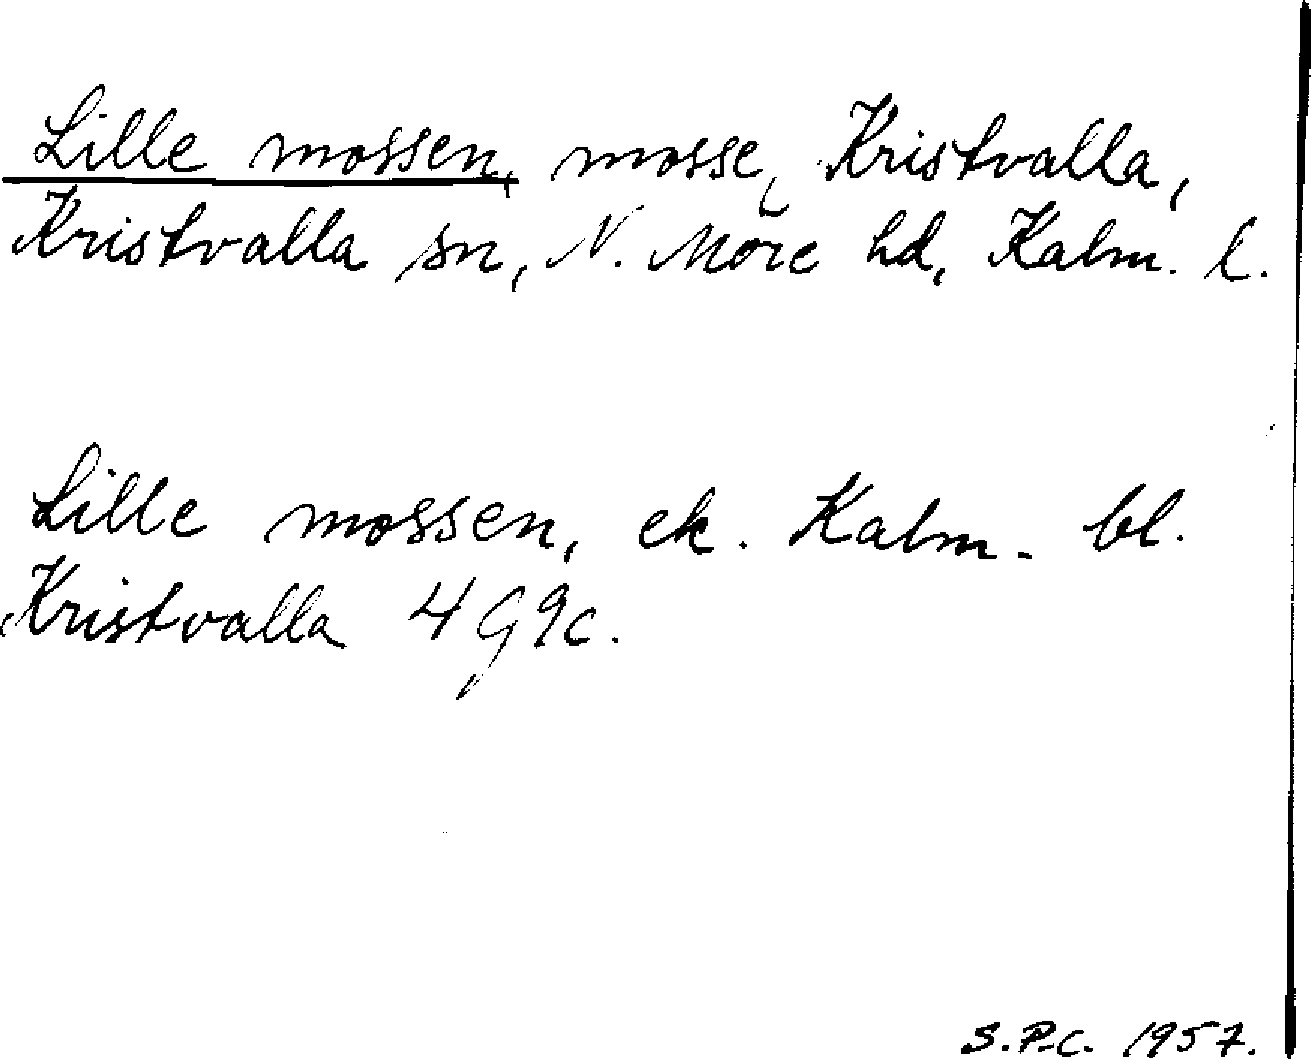 Lille mossen, mosse, Kristvalla,
Kristvalla sn, N. Möre hd, Kalm. l.
Lille mossen, ek. Kalm. bl.
Kristvalla 4 G 9c.
S.P.C. 1957.